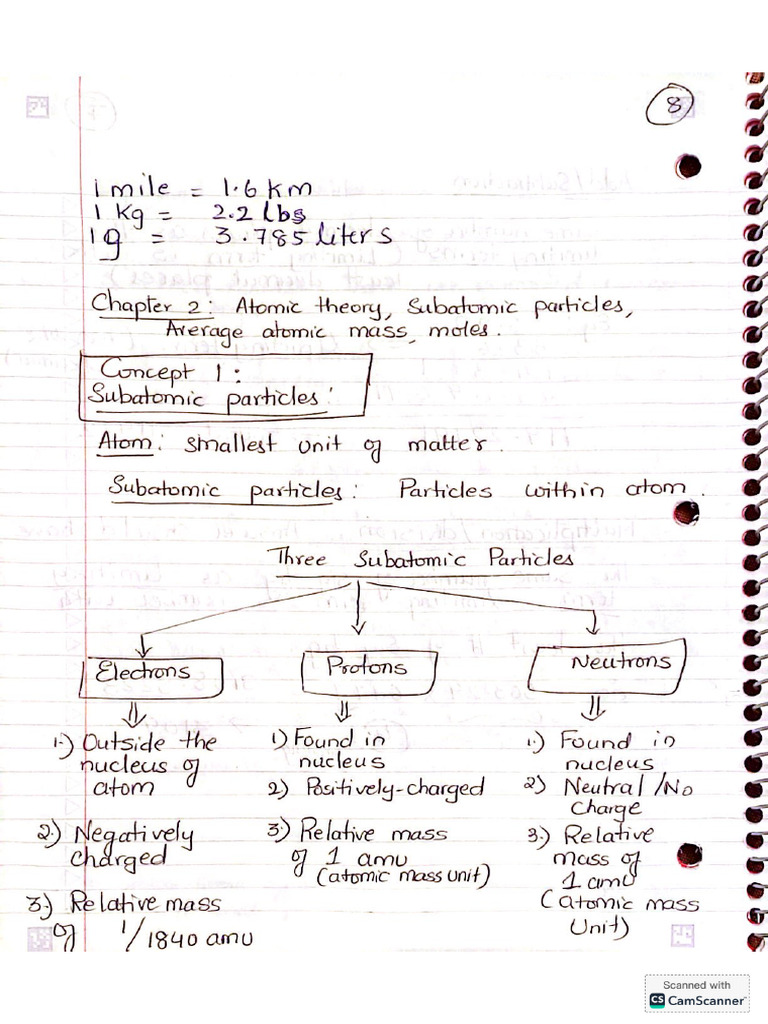 8
1 mile = 1.6 km
1 Kg = 2.2 lbs
1g = 3.785 liters
Chapter 2: Atomic theory, Subatomic particles,
Average atomic mass, moles.
Concept 1:
Subatomic particles:
Atom: smallest unit of matter.
Subatomic particles: Particles within atom.
Three Subatomic Particles
Electrons
1.) Outside the
nucleus of
atom
2.) Negatively
charged
3.) Relative mass
of 1/1840 amu
Protons
1) Found in
nucleus
2) Positively-charged
3.) Relative mass
of 1 amu
(atomic mass unit)
Neutrons
1.) Found in
nucleus
2) Neutral/No
charge
3.) Relative
mass of
1 amu
(atomic mass
Unit)
Scanned with
CS CamScanner